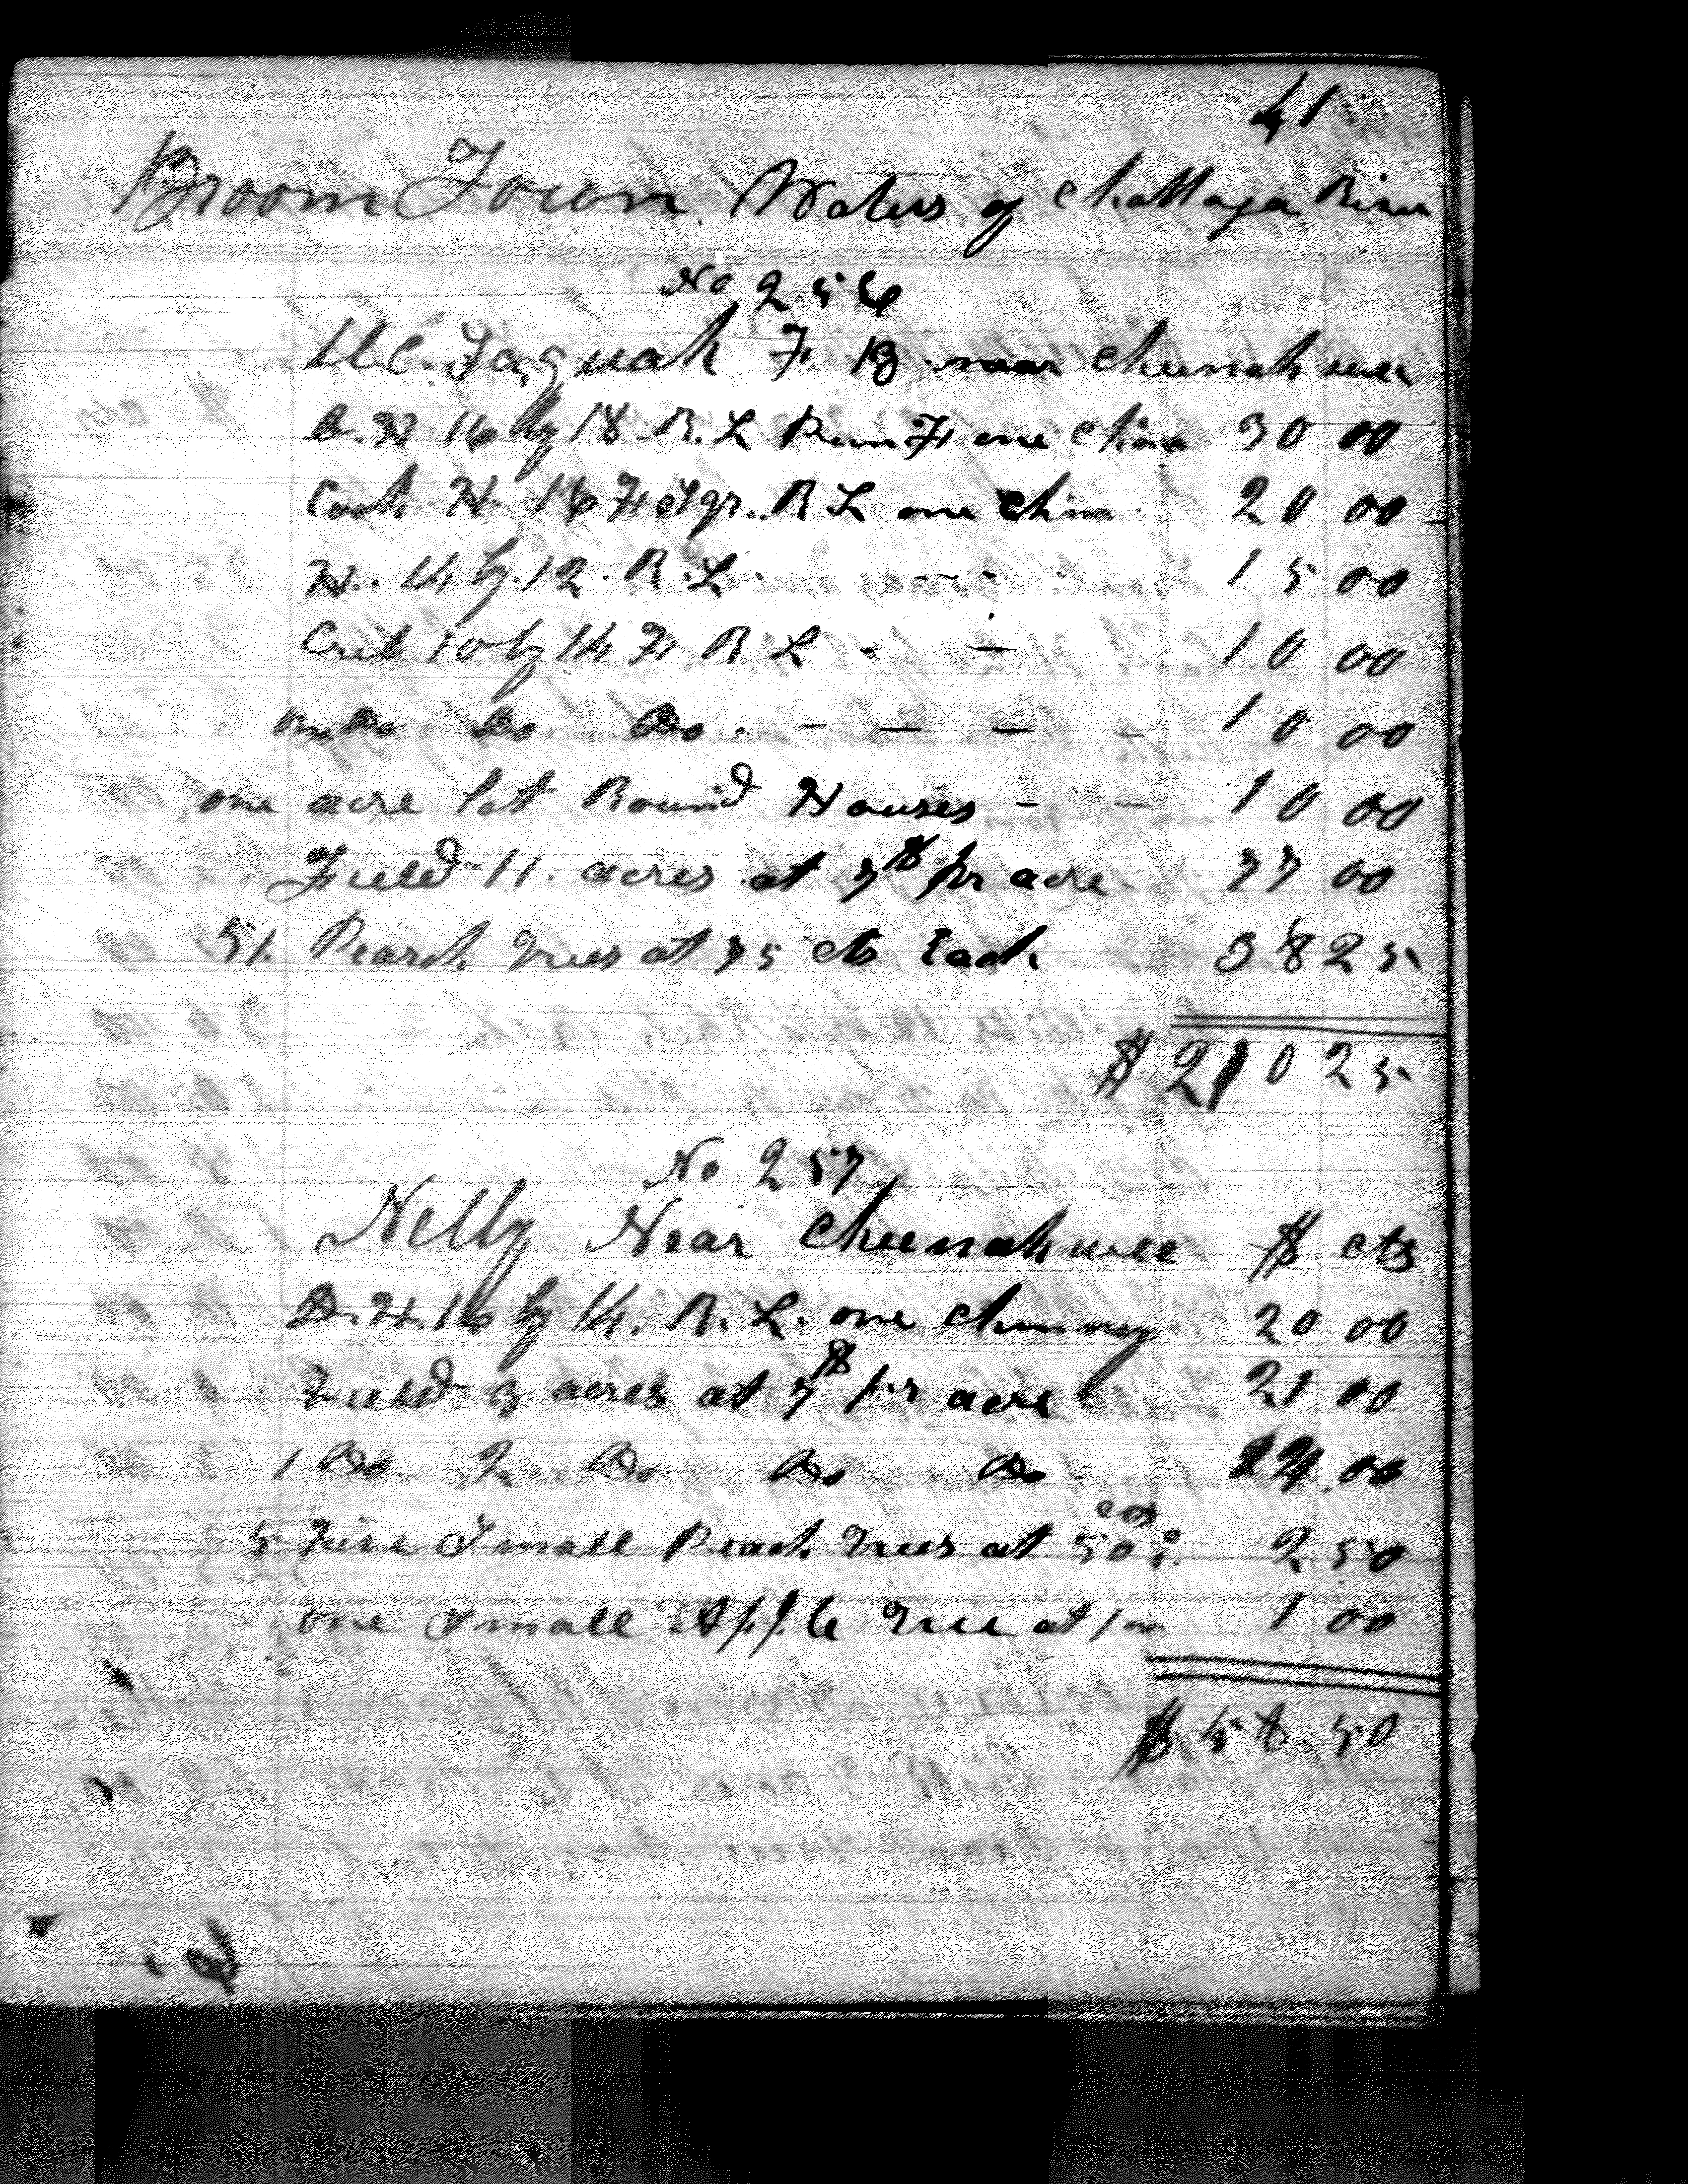 41
Broom Town Waters of Chattoga River
No 256
Uc. Taquah F B near Cheenahwee
D. H 16 by 18 R. L Pun. Fl one Chim 30 00
Cook H. 16 F Sqr. R L one Chim 20 00
H. 14 by 12 R. L. - - - 15 00
Crib 10 by 14 F R L - - 10 00
one Do Do Do. - - - - 10 00
one acre lot Round Houses - - 10 00
Field 11. acres at 7$ pr acre 77 00
51. Peach Trees at 75 cts Each 38 25
$ 210 25
No 257
Nelly Near Cheenahwee $ cts
D. H. 16 by 14. R. L. one Chimney 20 00
Field 3 acres at 7$ pr acre 21 00
1 Do 2. Do Do Do 14 00
5 Fine Small Peach Trees at 50 cts 2 50
one Small Apple Tree at 1 00 1 00
$ 58 50